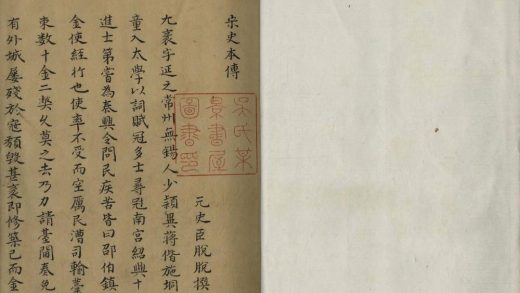 宋史本傳
元史臣脫脫撰
尤袤字延之常州無錫人少穎異蔣偕施坰
童入太學以詞賦冠多士尋冠南宮紹興十
進士第嘗為泰興令問民疾苦皆曰邵伯鎮
金使經行也使率不受而空厲民漕司輸藁
束數十金二弊久莫之去乃力請臺閫奏免
有外城屢殘於寇頹毀甚袤即修築已而金
吳氏
景書屋
圖書印